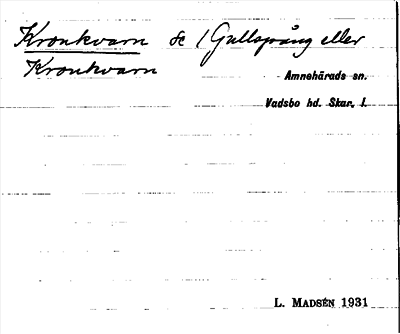 Kronkvarn se / Gullspång eller
Kronkvarn
Amnehärads sn.
Vadsbo hd. Skar. l.
L. MADSÉN 1931